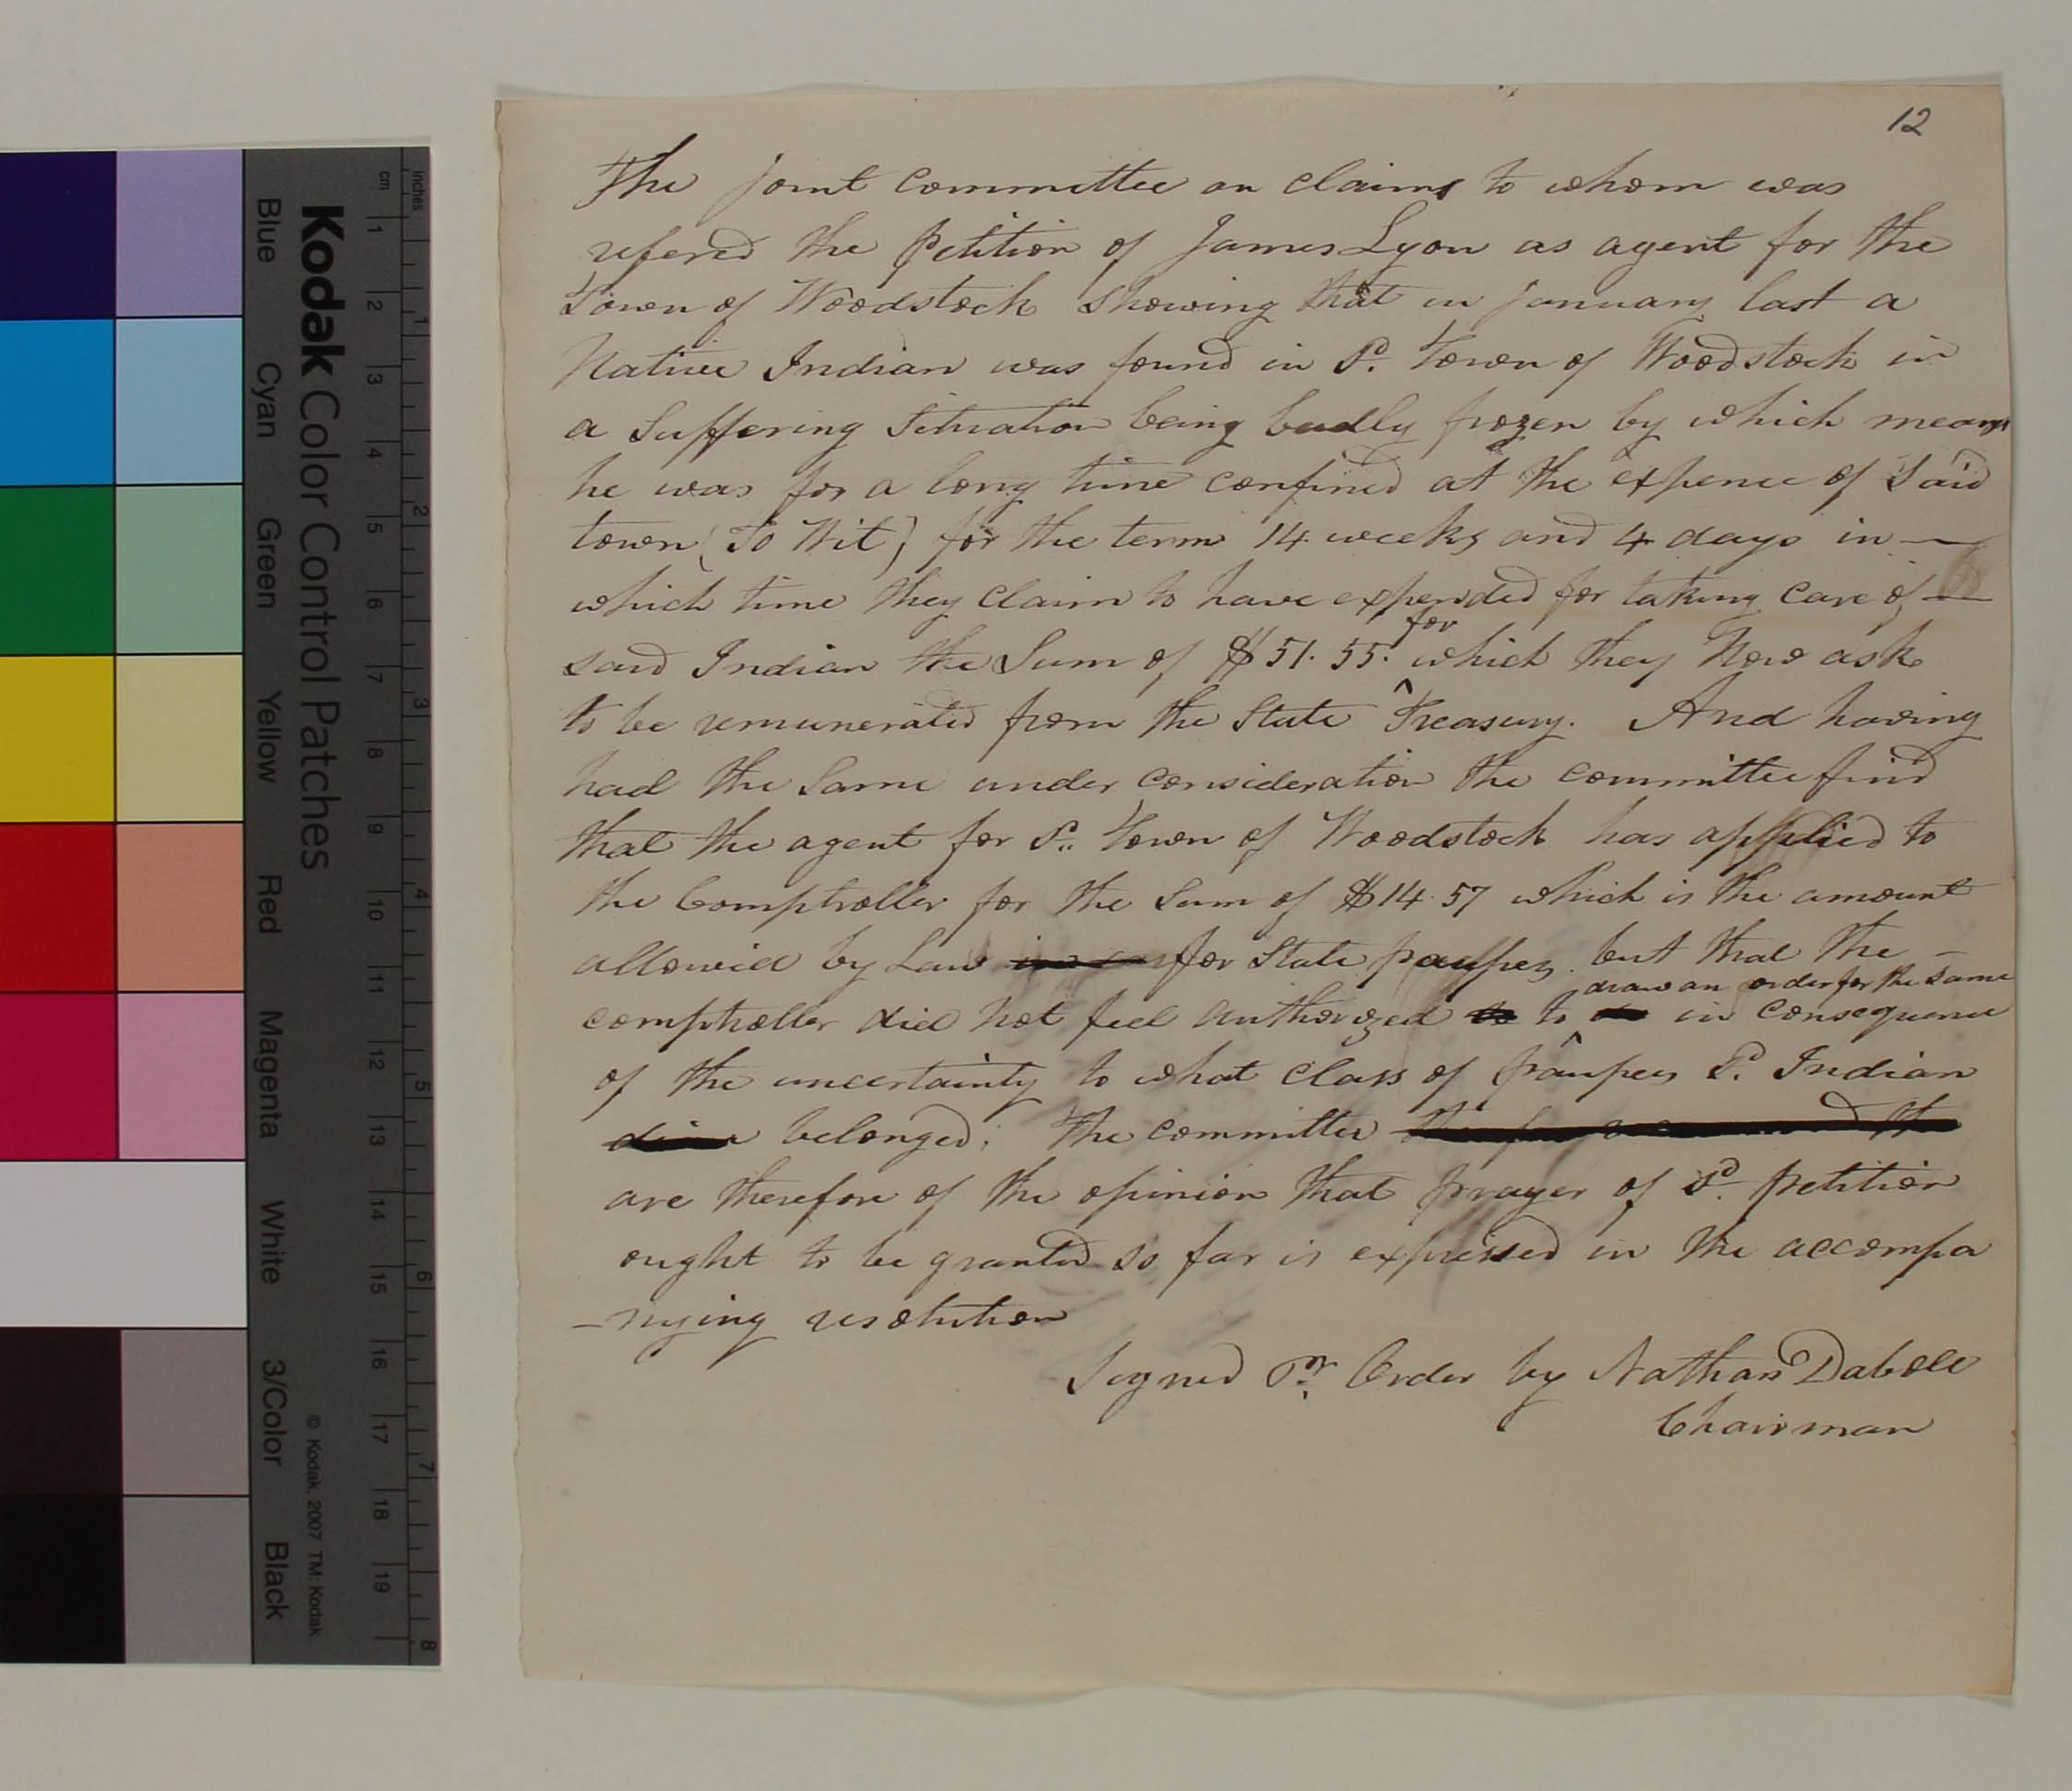 12
The joint committee on claims to whom was
refered the Petition of James Lyon as agent for the
Town of Woodstock Showing that in January last a
Native Indian was found in Sd. Town of Woodstock in
a Suffering Situation being badly frozen by which means
he was for a long time confined at the expence of Said
town (To Wit) for the term 14 weeks and 4 days in —
which time they claim to have expended for taking care of —
said Indian the Sum of $51.55. for which they Now ask
to be remunerated from the State Treasury. And having
had the Same under consideration the committee find
that the agent for Sd. Town of Woodstock has applied to
the Comptroller for the Sum of $14.57 which is the amount
allowed by Law for State paupers but that the —
draw an order for the same
comptroller did Not feel authorized to in consequence
of the uncertainty to what class of paupers Sd. Indian
belonged; The committee
are therefore of the opinion that prayer of Sd. petition
ought to be granted so far is expressed in the accompa
-nying resolution
Signed Pr. Order by Nathan Daboll
Chairman
Kodak Color Control Patches
© Kodak, 2007 TM: Kodak
Blue Cyan Green Yellow Red Magenta White 3/Color Black
cm 1 2 3 4 5 6 7 8 9 10 11 12 13 14 15 16 17 18 19
inches 1 2 3 4 5 6 7 8